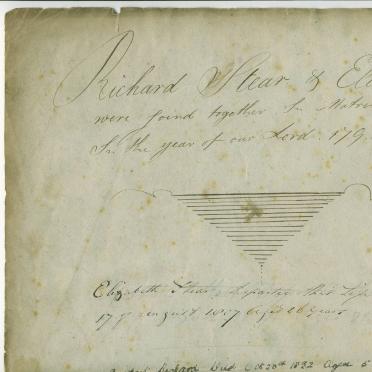 Richard Stear & El
were joind together In Matri
In the year of our Lord 179
Elizabeth Stear departed this Life
17 of August 1817 aged 26 years
Died Oct 28th 1832 Aged 5